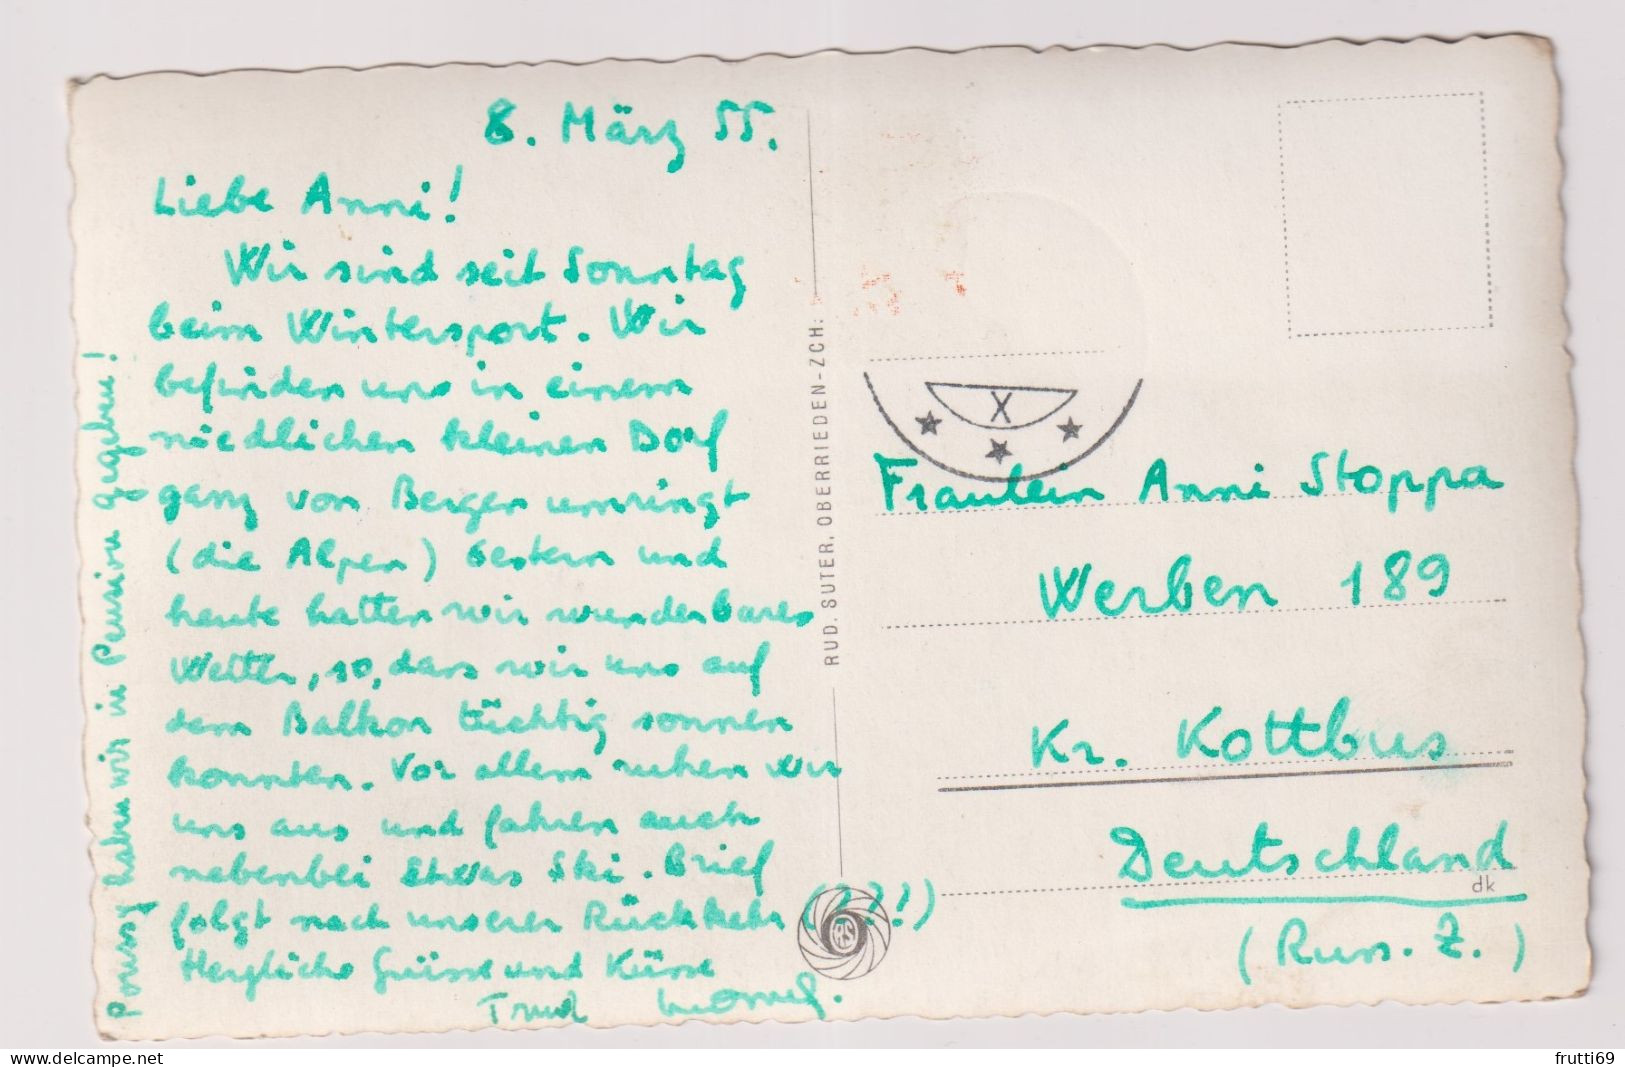 8. März 55.
Liebe Anni!
Wir sind seit Sonntag
beim Wintersport. Wir
befinden uns in einem
niedlichen kleinen Dorf
ganz von Bergen umringt
(die Alpen) Gestern und
heute hatten wir wunderbares
Wetter, so, dass wir uns auf
dem Balkon tüchtig sonnen
konnten. Vor allem ruhen wir
uns aus und fahren auch
nebenbei etwas Ski. Brief
folgt nach unserer Rückkehr (???!)
Herzliche Grüsse und Küsse
Trudi
haben wir in Pension gegeben!
RUD. SUTER, OBERRIEDEN-ZCH.
X
RS
Fräulein Anni Stoppa
Werben 189
Kr. Kottbus
Deutschland
dk
(Russ. Z.)
www.delcampe.net
frutti69